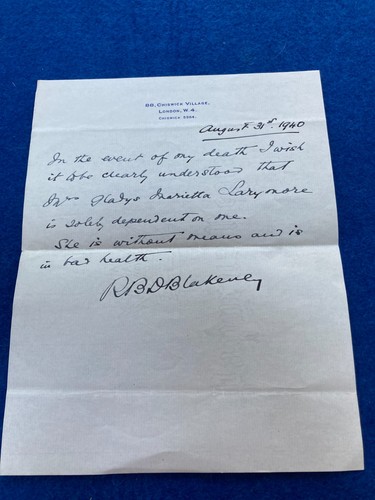 88, CHISWICK VILLAGE,
LONDON, W.4.
CHISWICK 2324.
August 31st. 1940
In the event of my death I wish
it to be clearly understood that
Mrs Gladys Marietta Larymore
is solely dependent on me.
She is without means and is
in bad health.
R B D Blakeney